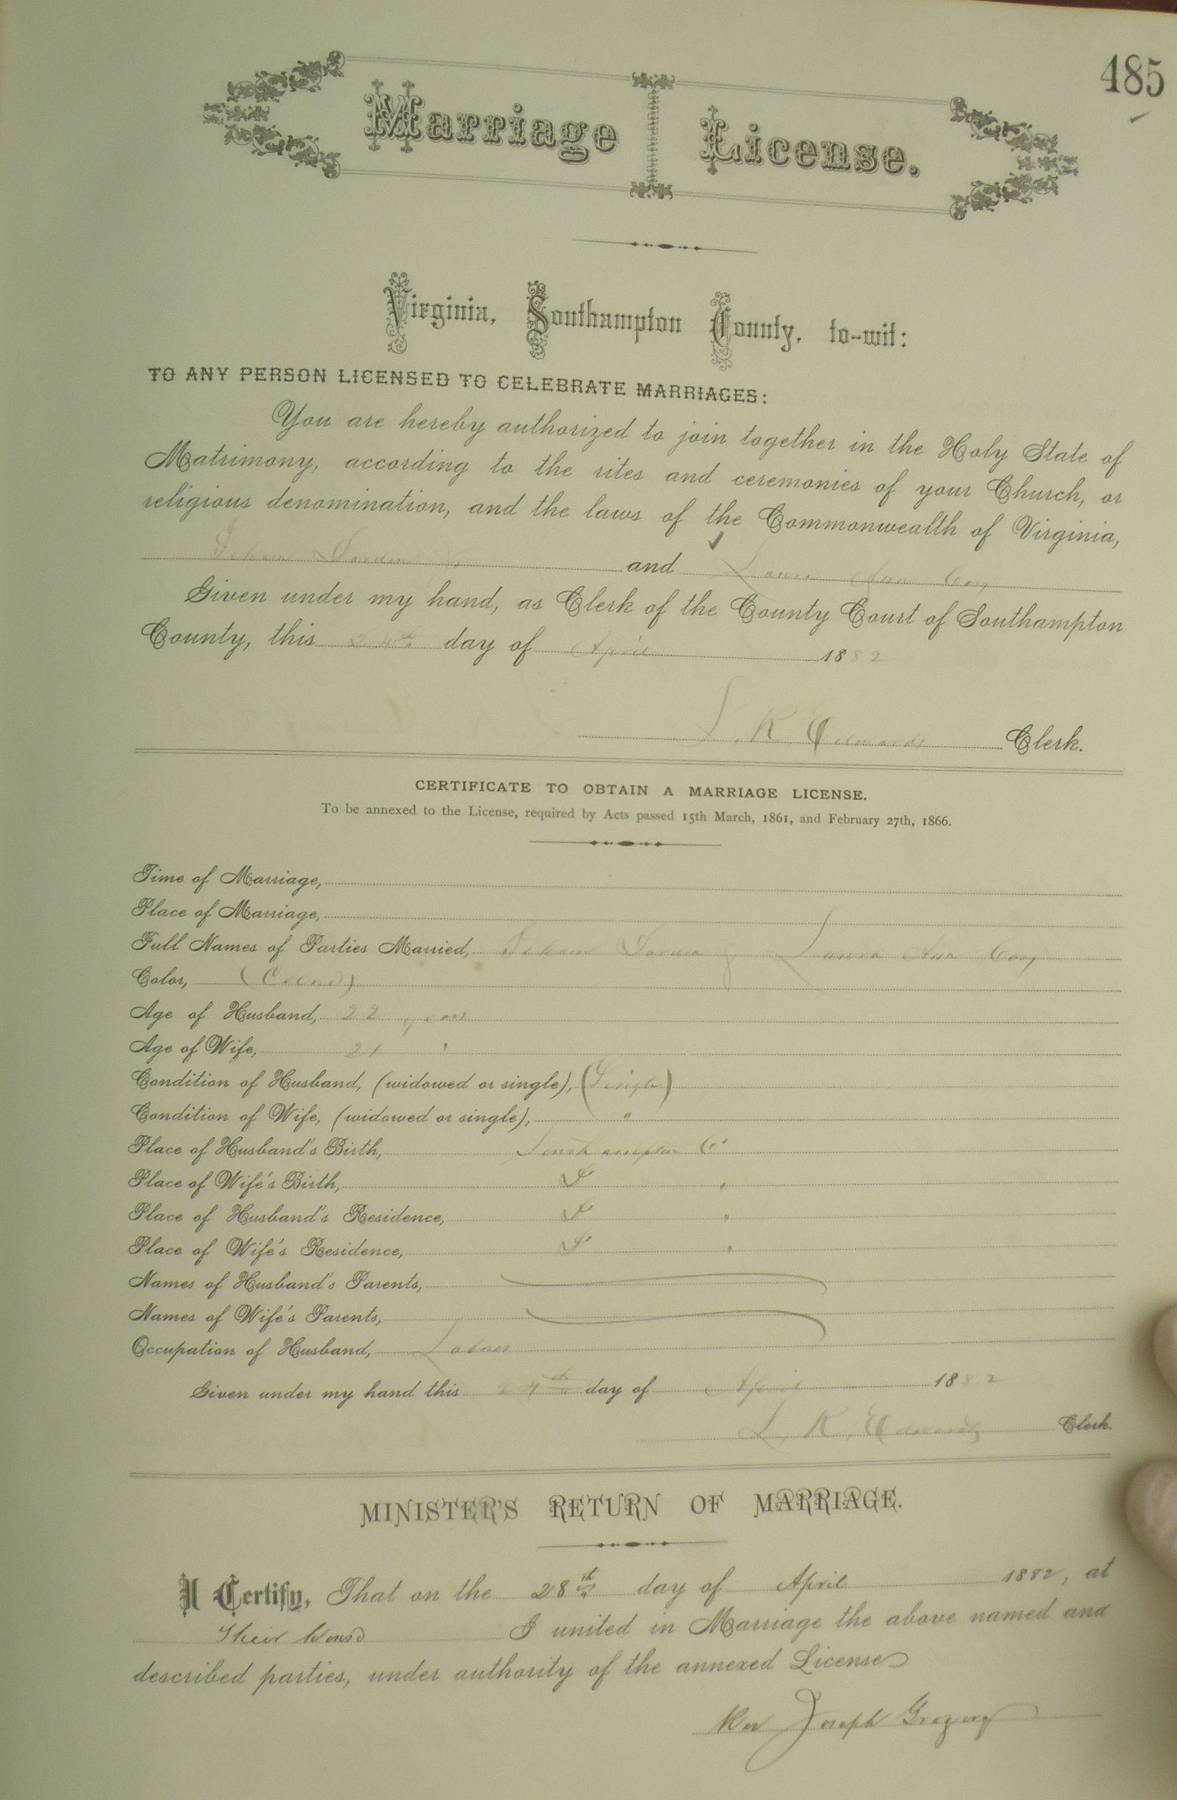 485
Marriage License.
Virginia, Southampton County, to-wit:
TO ANY PERSON LICENSED TO CELEBRATE MARRIAGES:
You are hereby authorized to join together in the Holy State of
Matrimony, according to the rites and ceremonies of your Church, or
religious denomination, and the laws of the Commonwealth of Virginia,
and Ann
Given under my hand, as Clerk of the County Court of Southampton
County, this 24th day of April 1882
L. R. Edwards Clerk.
CERTIFICATE TO OBTAIN A MARRIAGE LICENSE.
To be annexed to the License, required by Acts passed 15th March, 1861, and February 27th, 1866.
Time of Marriage,
Place of Marriage,
Full Names of Parties Married, Laura Ann
Color, (Colored)
Age of Husband, 22 years
Age of Wife, 21 "
Condition of Husband, (widowed or single), (Single)
Condition of Wife, (widowed or single), "
Place of Husband's Birth, Southampton Co
Place of Wife's Birth, "
Place of Husband's Residence, "
Place of Wife's Residence, "
Names of Husband's Parents,
Names of Wife's Parents,
Occupation of Husband, Laborer
Given under my hand this 24th day of April 1882
L. R. Edwards Clerk.
MINISTER'S RETURN OF MARRIAGE.
I Certify, That on the 28th day of April 1882, at
Their I united in Marriage the above named and
described parties, under authority of the annexed License
Rev Joseph Gregory